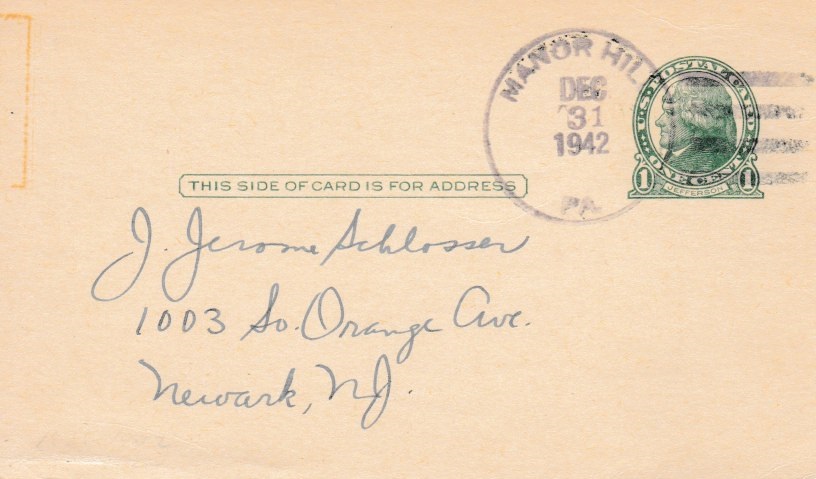 MANOR HIL
DEC
31
1942
PA
U.S. POSTAL CARD
ONE CENT
1 JEFFERSON 1
THIS SIDE OF CARD IS FOR ADDRESS
J. Jerome Schlosser
1003 So. Orange Ave.
Newark, N.J.